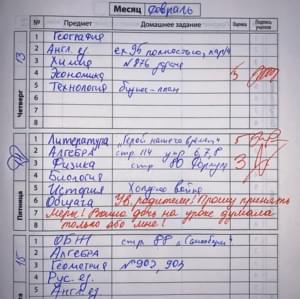 Месяц февраль
Предмет Домашнее задание Оценка Подпись учителя
13
Четверг
1 География
2 Англ. яз.
3 Химия №876
4 Экономика 5
5 Технология бизнес-план
6
7
8
Пятница
1 Литература "Герой нашего времени" 5
2 Алгебра стр 114 упр 6,7,8
3 Физика стр 80 3
4 Биология
5 История Холодная война
6 Общага Ув. родители! Прошу принять
7 меры! Ваша дочь на уроке думала
8 только обо мне!
15
1 ОБЖ стр 88
2 Алгебра
3 Геометрия №902, 903
4 Рус. яз.
5 Англ. яз.